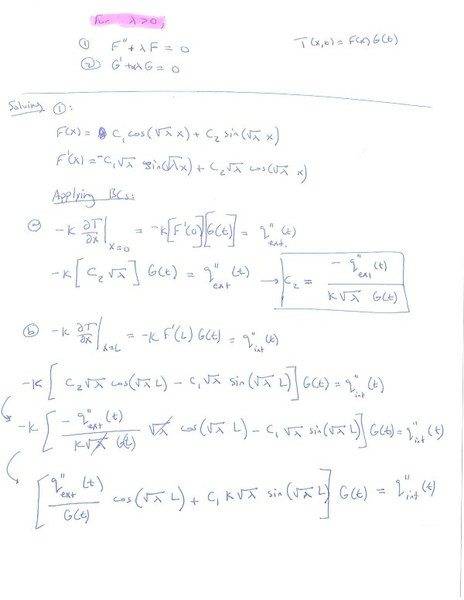 For λ>0,
① F'' + λF = 0
T(x,t) = F(x)G(t)
② G' + αλG = 0
Solving ①:
F(x) = C₁ cos(√λ x) + C₂ sin(√λ x)
F'(x) = -C₁√λ sin(√λ x) + C₂√λ cos(√λ x)
Applying BCs:
ⓐ -K ∂T/∂x |ₓ₌₀ = -K[F'(0)][G(t)] = q''ext (t)
-K[C₂√λ] G(t) = q''ext (t) → C₂ = -q''ext (t) / K√λ G(t)
ⓑ -K ∂T/∂x |ₓ₌L = -K F'(L) G(t) = q''int (t)
-K[C₂√λ cos(√λ L) - C₁√λ sin(√λ L)] G(t) = q''int (t)
-K[-q''ext (t) / K√λ G(t) √λ cos(√λ L) - C₁√λ sin(√λ L)] G(t) = q''int (t)
[q''ext (t) / G(t) cos(√λ L) + C₁K√λ sin(√λ L)] G(t) = q''int (t)